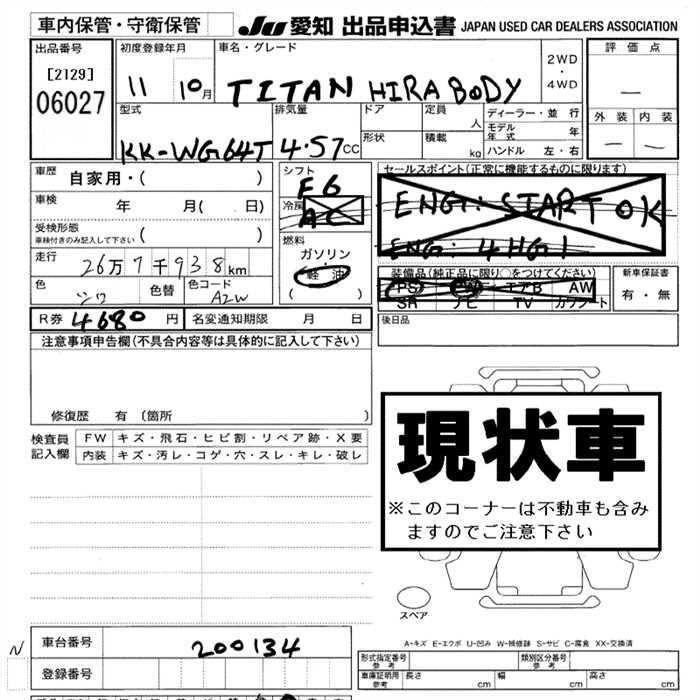 車内保管・守衛保管
JU 愛知 出品申込書 JAPAN USED CAR DEALERS ASSOCIATION
出品番号
[2129]
06027
初度登録年月
11 10月
車名・グレード
TITAN HIRA BODY
2WD
・
4WD
評価点
—
外装 内装
— —
型式
KK-WG64T
排気量
4.57CC
ドア
形状
定員 人
積載 kg
ディーラー・並行
モデル年式 年
ハンドル 左・右
車歴 自家用・( )
車検 年 月( 日)
受検形態
車検付きのみ記入して下さい ( )
走行 26万7千938km
色 シロ 色替 色コード A2W
シフト
F6
冷房
AC
燃料
ガソリン
・
軽油
( )
セールスポイント(正常に機能するものに限ります)
ENG: START OK
ENG: 4HG1
装備品(純正品に限り○をつけてください)
PS エアB AW
SR ナビ TV カワシート
新車保証書
有・無
R券 4680円 名変通知期限 月 日
後日品
注意事項申告欄(不具合内容等は具体的に記入して下さい)
修復歴 有(箇所 )
検査員
記入欄
FW キズ・飛石・ヒビ割・リペア跡・X要
内装 キズ・汚レ・コゲ・穴・スレ・キレ・破レ
現状車
※このコーナーは不動車も含み
ますのでご注意下さい
スペア
A-キズ E-エクボ U-凹み W-補修跡 S-サビ C-腐食 XX-交換済
N
車台番号 200134
登録番号
形式指定番号
参考
類別区分番号
参考
車庫証明用
参考
長さ cm 幅 cm 高さ cm